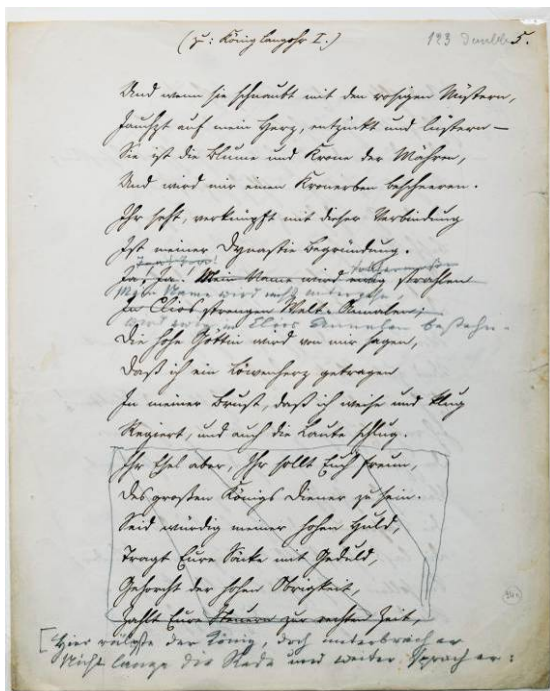 (zu: König Langohr I.)
5.
Und wenn sie schnaubt mit den rosigen Nüstern,
Jauchzt auf mein Herz, entzückt und lüstern —
Sie ist die Blume und Krone der Mähren,
Und wird mir einen Kronerben bescheeren.
Ihr seht, verknüpft mit dieser Verbindung
Ist meiner Dynastie Begründung.
Ja, Ja. Mein Name wird ewig strahlen
Mein Name wird nicht untergehn
In Clios strengen Welt-Annalen;
Wird ewig in Clios Annalen bestehn.
Die hohe Göttin wird von mir sagen,
Daß ich ein Löwenherz getragen
In meiner Brust, daß ich weise und klug
Regiert, und auch die Laute schlug.
Ihr Esel aber, Ihr sollt Euch freun,
Des großen Königs Diener zu sein.
Seid würdig meiner hohen Huld,
Tragt Eure Säcke mit Geduld,
Gehorcht der hohen Obrigkeit,
Zahlt Eure Steuern zur rechten Zeit,
[Hier rülpste der König, doch unterbrach er
Nicht lange die Rede und weiter sprach er: